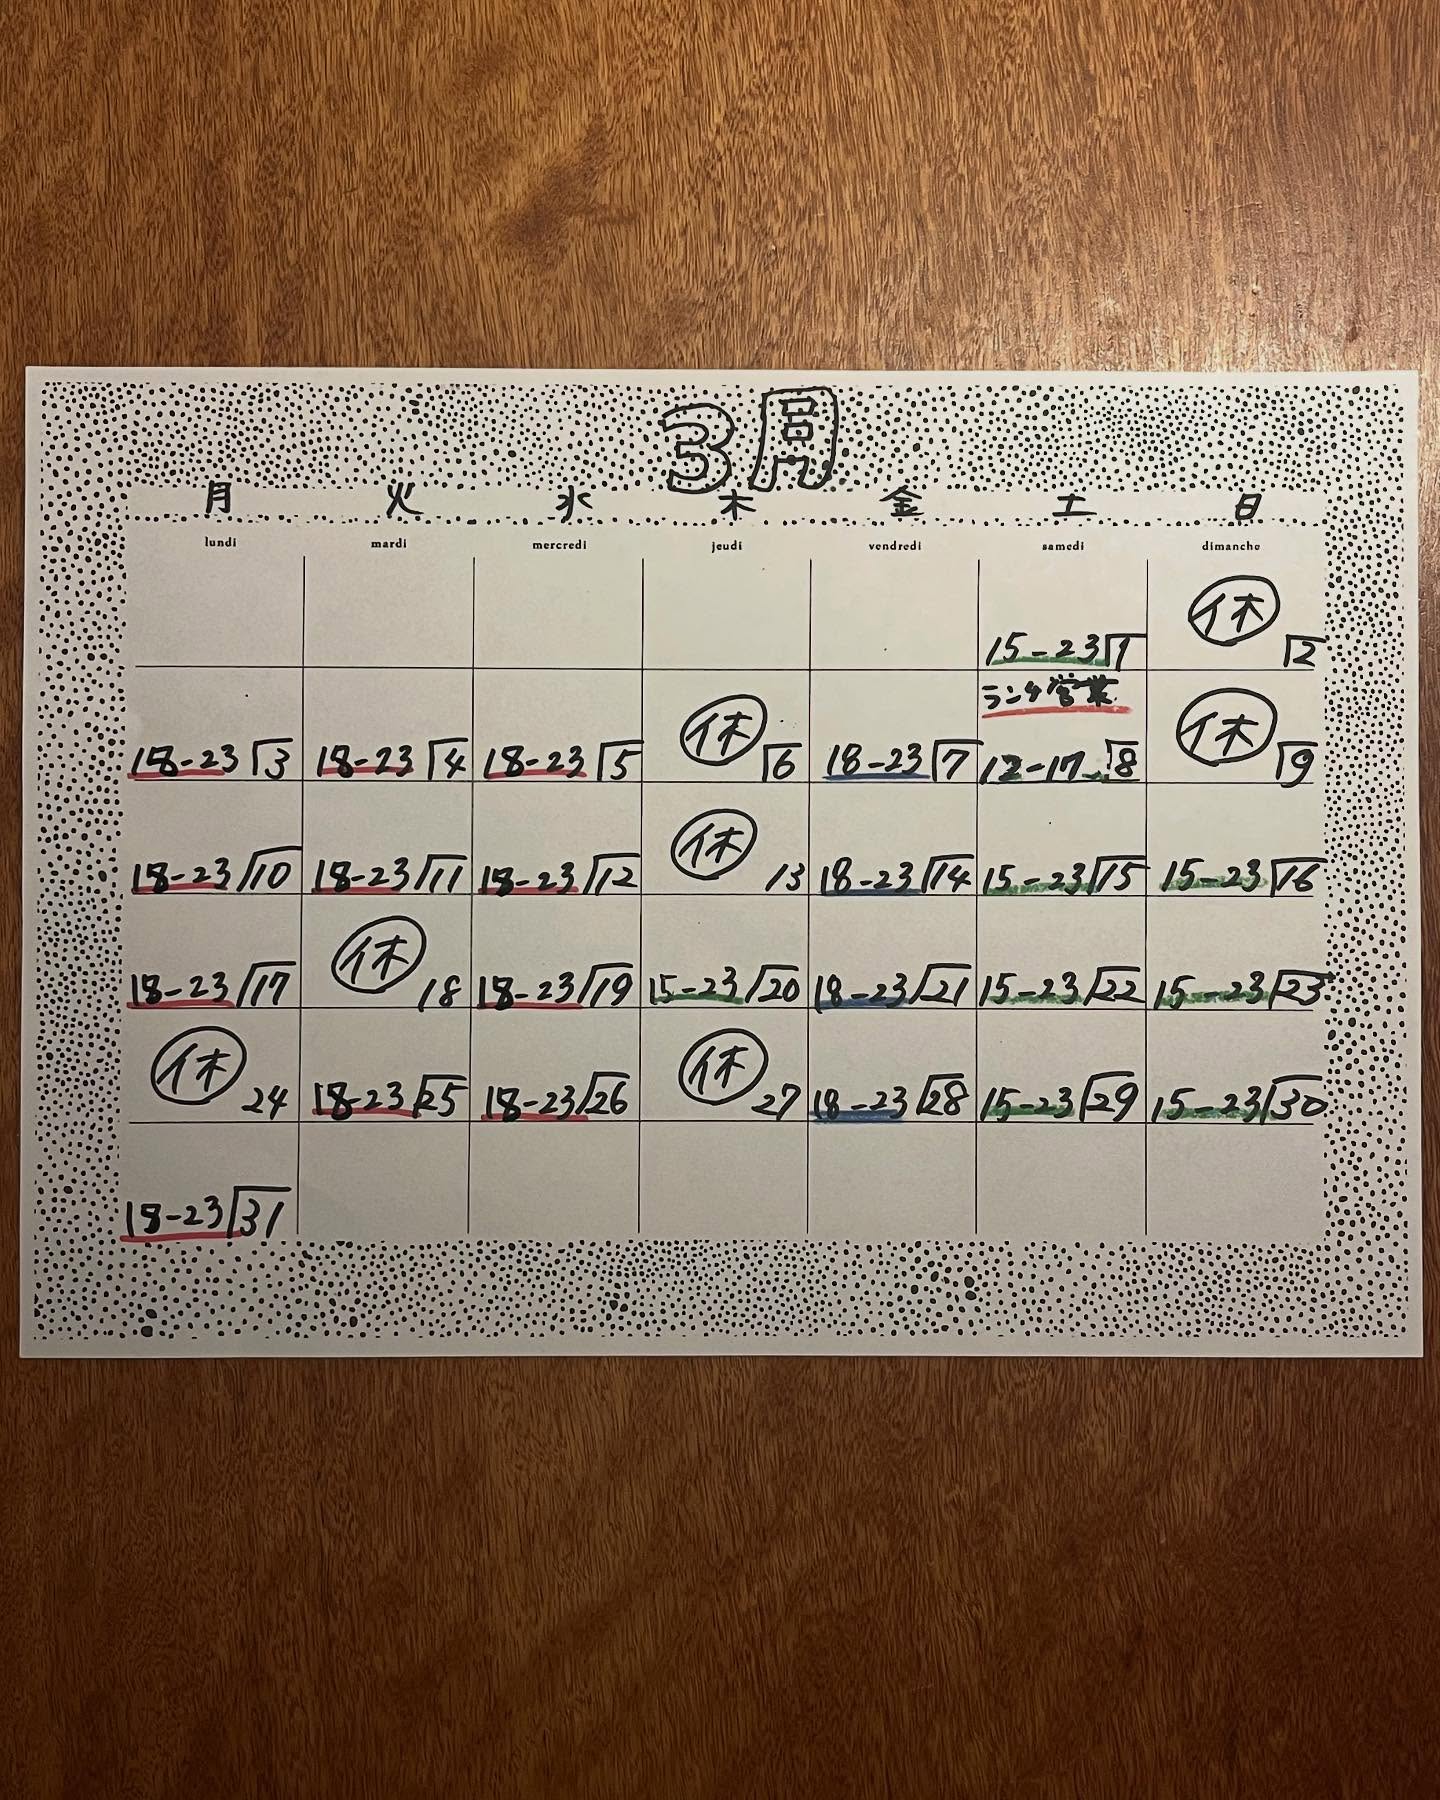 3月
月 火 水 木 金 土 日
lundi mardi mercredi jeudi vendredi samedi dimanche
休
15-23 1 2
ランチ営業
休 休
18-23 3 18-23 4 18-23 5 6 18-23 7 12-17 8 9
休
18-23 10 18-23 11 18-23 12 13 18-23 14 15-23 15 15-23 16
休
18-23 17 18 18-23 19 15-23 20 18-23 21 15-23 22 15-23 23
休 休
24 18-23 25 18-23 26 27 18-23 28 15-23 29 15-23 30
18-23 31